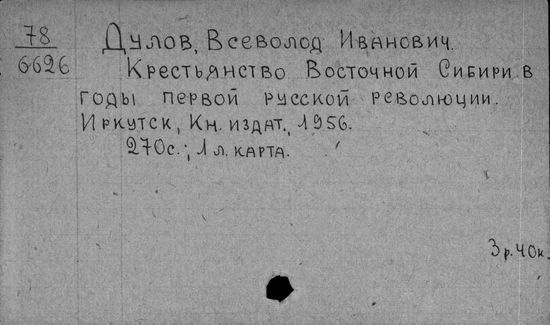 78
6626
Дулов, Всеволод Иванович.
Крестьянство Восточной Сибири в
годы первой русской революции.
Иркутск, Кн. издат., 1956.
270с.; 1 л. карта.
3 р. 40 к.